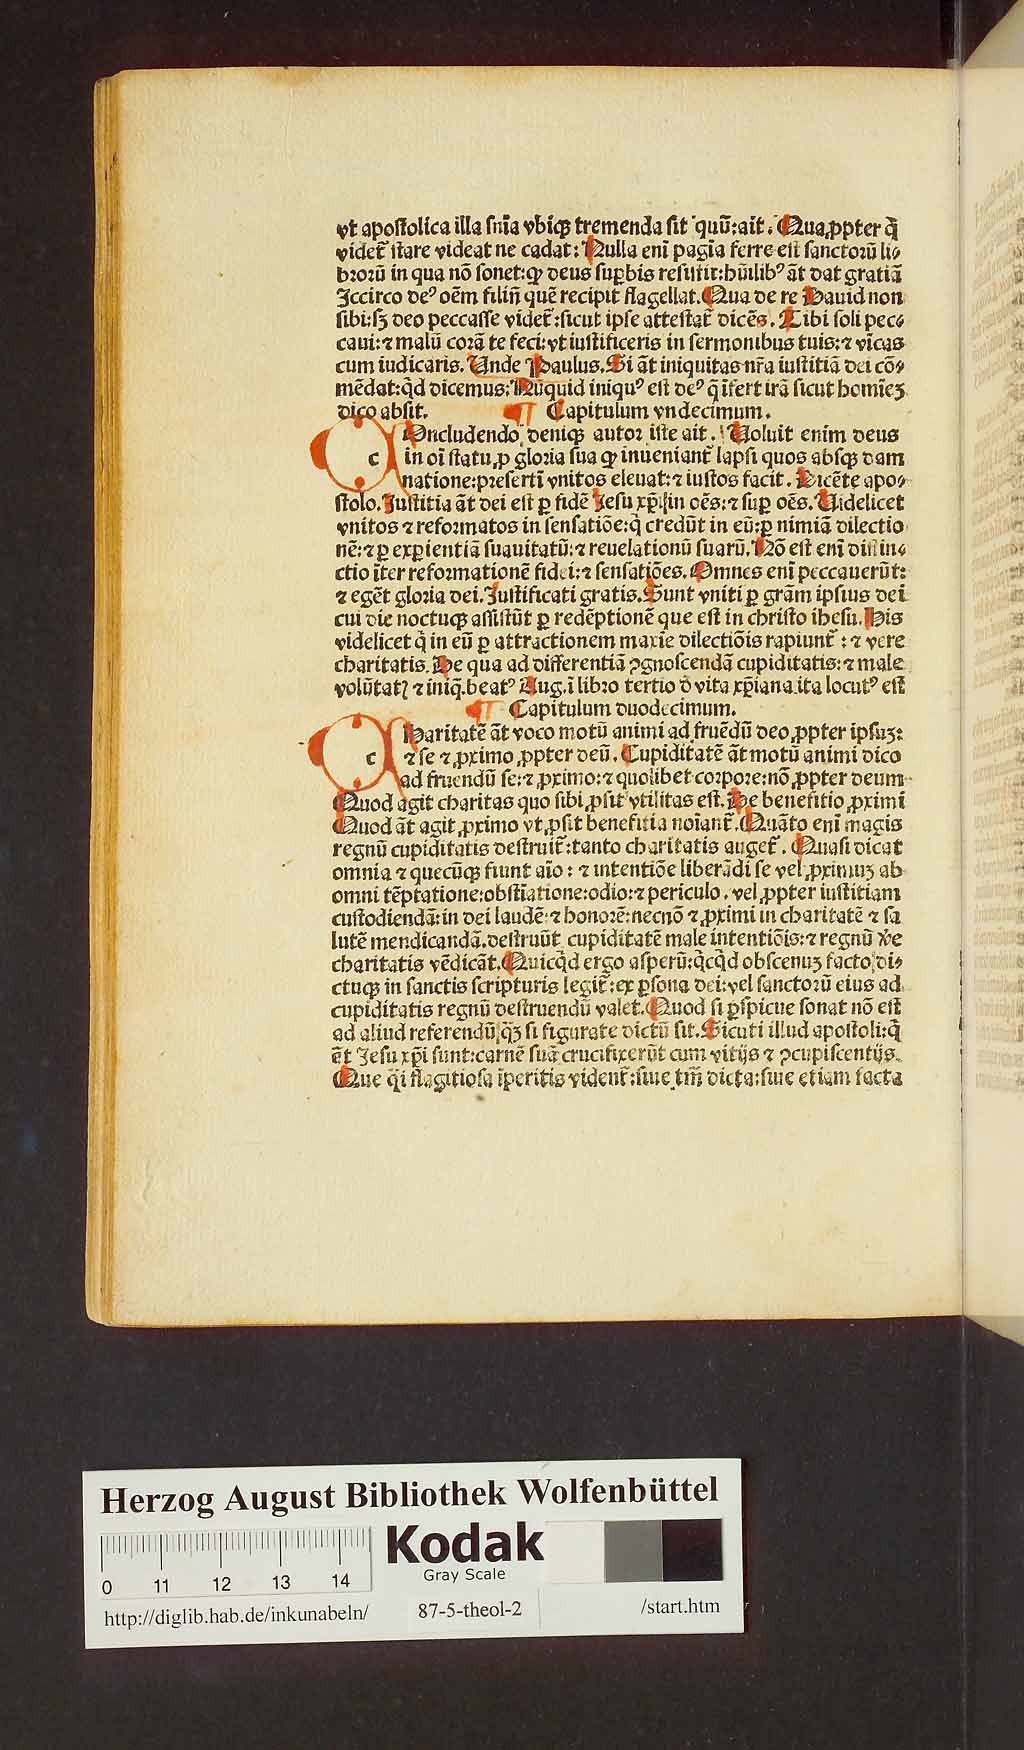 vt apostolica illa snīa vbiqꝫ tremenda sit quū:ait. Qua ꝓpter q̄
videt᷑ stare videat ne cadat: Nulla enī pagīa ferre est sanctorū li⸗
brorū in qua nō sonet:ꝙ deus suꝑbis resistit:hūilibꝰ āt dat gratiā
Iccirco deꝰ oēm filiū quē recipit flagellat. Qua de re Dauid non
sibi:sꝫ deo peccasse videt᷑:sicut ipse attestat᷑ dicēs. Tibi soli pec⸗
caui:⁊ malū corā te feci:vt iustificeris in sermonibus tuis:⁊ vīcas
cum iudicaris. Unde Paulus. Si āt iniquitas nr̄a iustitiā dei cō⸗
mēdat:qd̄ dicemus: Nūquid iniquꝰ est deꝰ q̄ īfert irā sicut homīeꝫ
dico absit. ¶ Capitulum vndecimum.
c Oncludendo denique autor iste ait. Uoluit enim deus
in oī statu ꝓ gloria sua ꝙ inueniant᷑ lapsi quos absqꝫ dam
natione:presertī vnitos eleuat:⁊ iustos facit. Dicēte apo⸗
stolo. Iustitia āt dei est ꝑ fidē Iesu xp̄i in oēs:⁊ suꝑ oēs. Uidelicet
vnitos ⁊ reformatos in sensatiōe:q̄ credūt in eū:ꝑ nimiā dilectio
nē:⁊ ꝑ exꝑientiā suauitatū:⁊ reuelationū suarū. Nō est enī distin⸗
ctio īter reformationē fidei:⁊ sensatiōes. Omnes enī peccauerūt:
⁊ egēt gloria dei. Iustificati gratis. Sunt vniti ꝑ grām ipsius dei
cui die noctuqꝫ assistūt ꝑ redēptionē que est in christo ihesu. His
videlicet q̄ in eū ꝑ attractionem maxie dilectiōis rapiunt᷑:⁊ vere
charitatis. De qua ad differentiā ꝯgnoscendā cupiditatis:⁊ male
volūtatꝭ ⁊ iniq̄. beatꝰ Aug. ī libro tertio d̄ vita xp̄iana ita locutꝰ est
¶ Capitulum duodecimum.
c Haritatē āt voco motū animi ad fruēdū deo ꝓpter ipsuꝫ:
⁊ se ⁊ ꝓximo ꝓpter deū. Cupiditatē āt motū animi dico
ad fruendū se:⁊ ꝓximo:⁊ quolibet corpore:nō ꝓpter deum
Quod agit charitas quo sibi ꝓsit vtilitas est. De benefitio ꝓximi
Quod āt agit ꝓximo vt ꝓsit benefitia noīant᷑. Quāto enī magis
regnū cupiditatis destruit᷑:tanto charitatis auget᷑. Quasi dicat
omnia ⁊ quecūqꝫ fiunt aīo:⁊ intentiōe liberādi se vel ꝓximuꝫ ab
omni tēptatione:obstīatione:odio:⁊ periculo. vel ꝓpter iustitiam
custodiendā:in dei laudē:⁊ honorē:necnō ⁊ ꝓximi in charitatē ⁊ sa
lutē mendicandā. destruūt cupiditatē male intentiōis:⁊ regnū vere
charitatis vēdicāt. Quicqd̄ ergo asperū:qcqd̄ obscenuꝫ facto di⸗
ctuqꝫ in sanctis scripturis legit᷑:ex ꝑsona dei:vel sanctorū eius ad
cupiditatis regnū destruendū valet. Quod si ꝑspicue sonat nō est
ad aliud referendū qꝫ si figurate dictū sit. Sicuti illud apostoli:q̄
ēt Iesu xp̄i sunt:carnē suā crucifixerūt cum vitijs ⁊ ꝯcupiscentijs.
Que q̄i flagitiosa īperitis vident᷑:siue tm̄ dicta:siue etiam facta
Herzog August Bibliothek Wolfenbüttel
Kodak
Gray Scale
0 11 12 13 14
http://diglib.hab.de/inkunabeln/ 87-5-theol-2 /start.htm